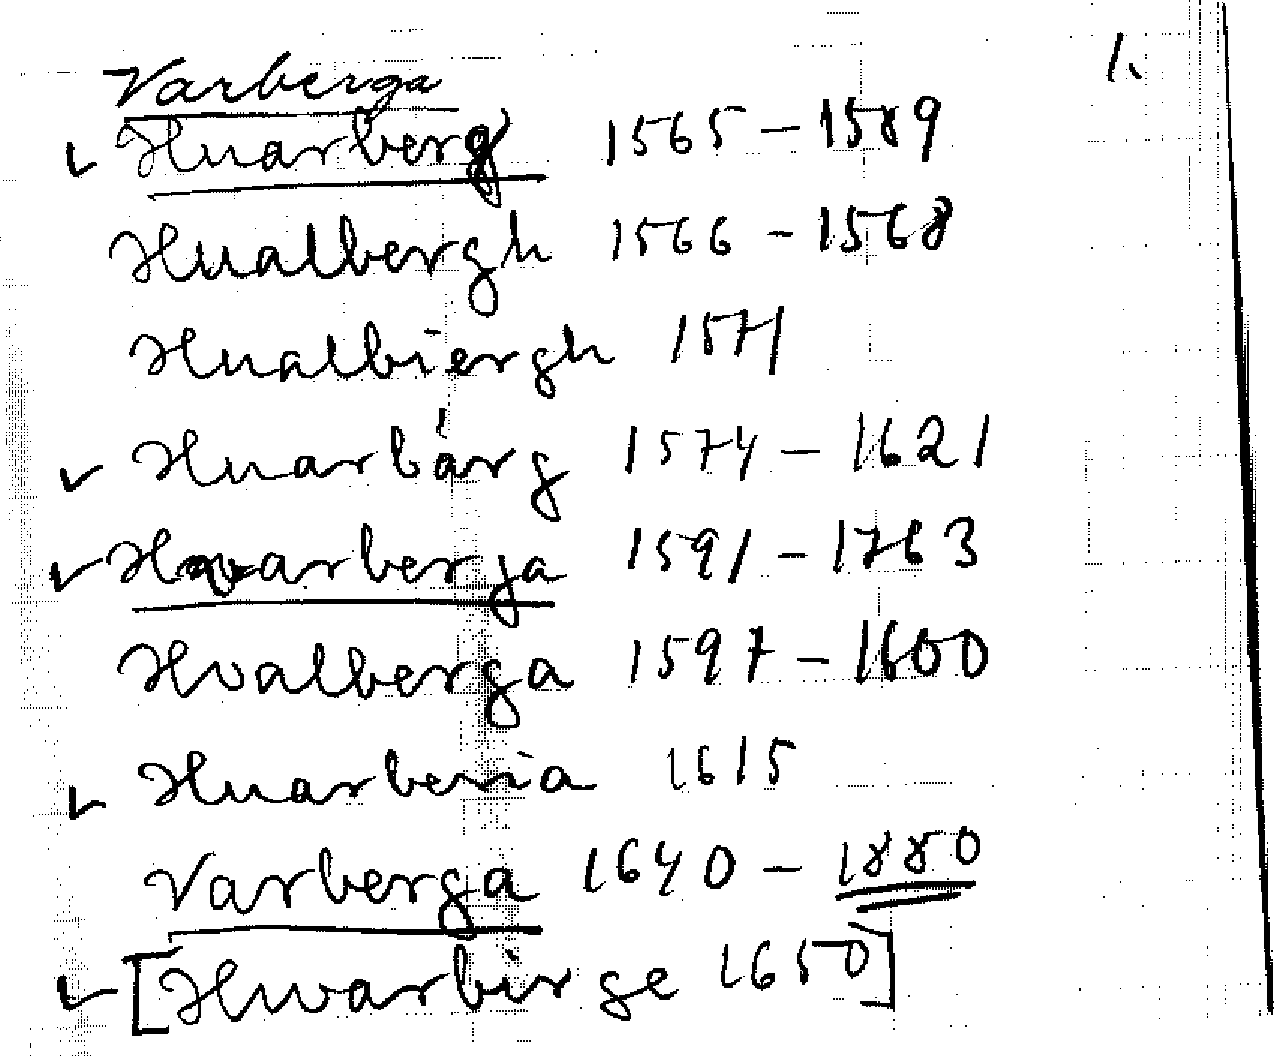 1.
Varberga
✓ Huarberg 1565 – 1589
Hualbergh 1566 – 1568
Hualbiergh 1571
✓ Huarbärg 1574 – 1621
✓ Hvarberga 1591 – 1763
Hvalberga 1597 – 1600
✓ Huarberia 1615
Varberga 1640 – 1880
✓ [Hwarbirge 1650]